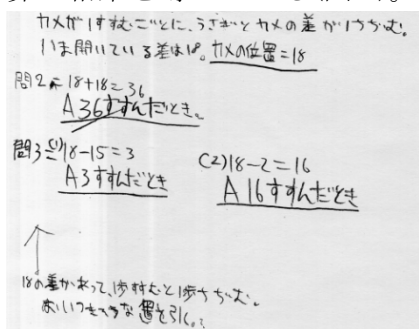 カメが1すすむごとに、うさぎとカメの差が1ちぢむ。
いま開いている差は18。カメの位置=18
問2 18+18=36
A 36すすんだとき。
問3 (1) 18-15=3
A 3すすんだとき
(2) 18-2=16
A 16すすんだとき
18の差があって、1歩すすむと1歩ちぢむ。
おいつき 置を引く。